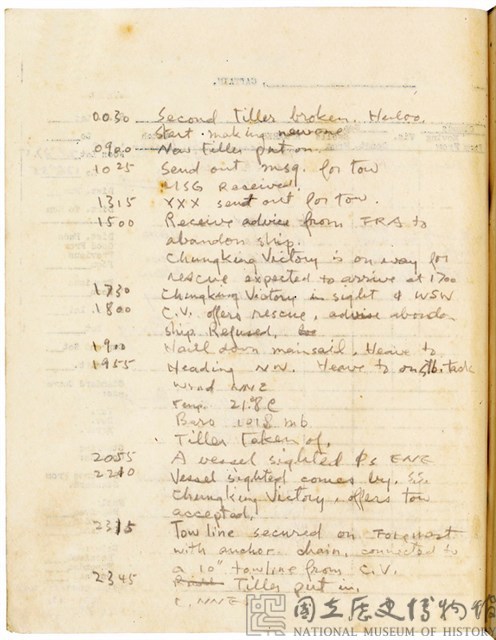 CAPTAIN.
0030 Second Tiller broken. Helpo.
Start making new one
0900 New Tiller put on.
1025 Send out msg. for tow
MSG received.
1315 XXX sent out for tow.
1500 Receive advice from FRA to
abandon ship.
Chungking Victory is on away for
rescue expected to arrive at 1700
1730 Chungking Victory in sight WSW
1800 C.V. offers rescue, advise abandon
ship. Refused.
1900 Haul down mainsail, Heave to
1955 Heading NW. Heave to on stb. tack
Wind NNE
Temp. 21.8 C
Baro 1018 mb
Tiller Taken of.
2055 A vessel sighted Ps ENE
2210 Vessel sighted comes by. SS.
Chungking Victory, offers tow
accepted.
2315 Tow line secured on Foremast
with anchor chain, connected to
a 10" towline from C.V.
2345 Tiller put in.
C. NNE
國立歷史博物館
NATIONAL MUSEUM OF HISTORY